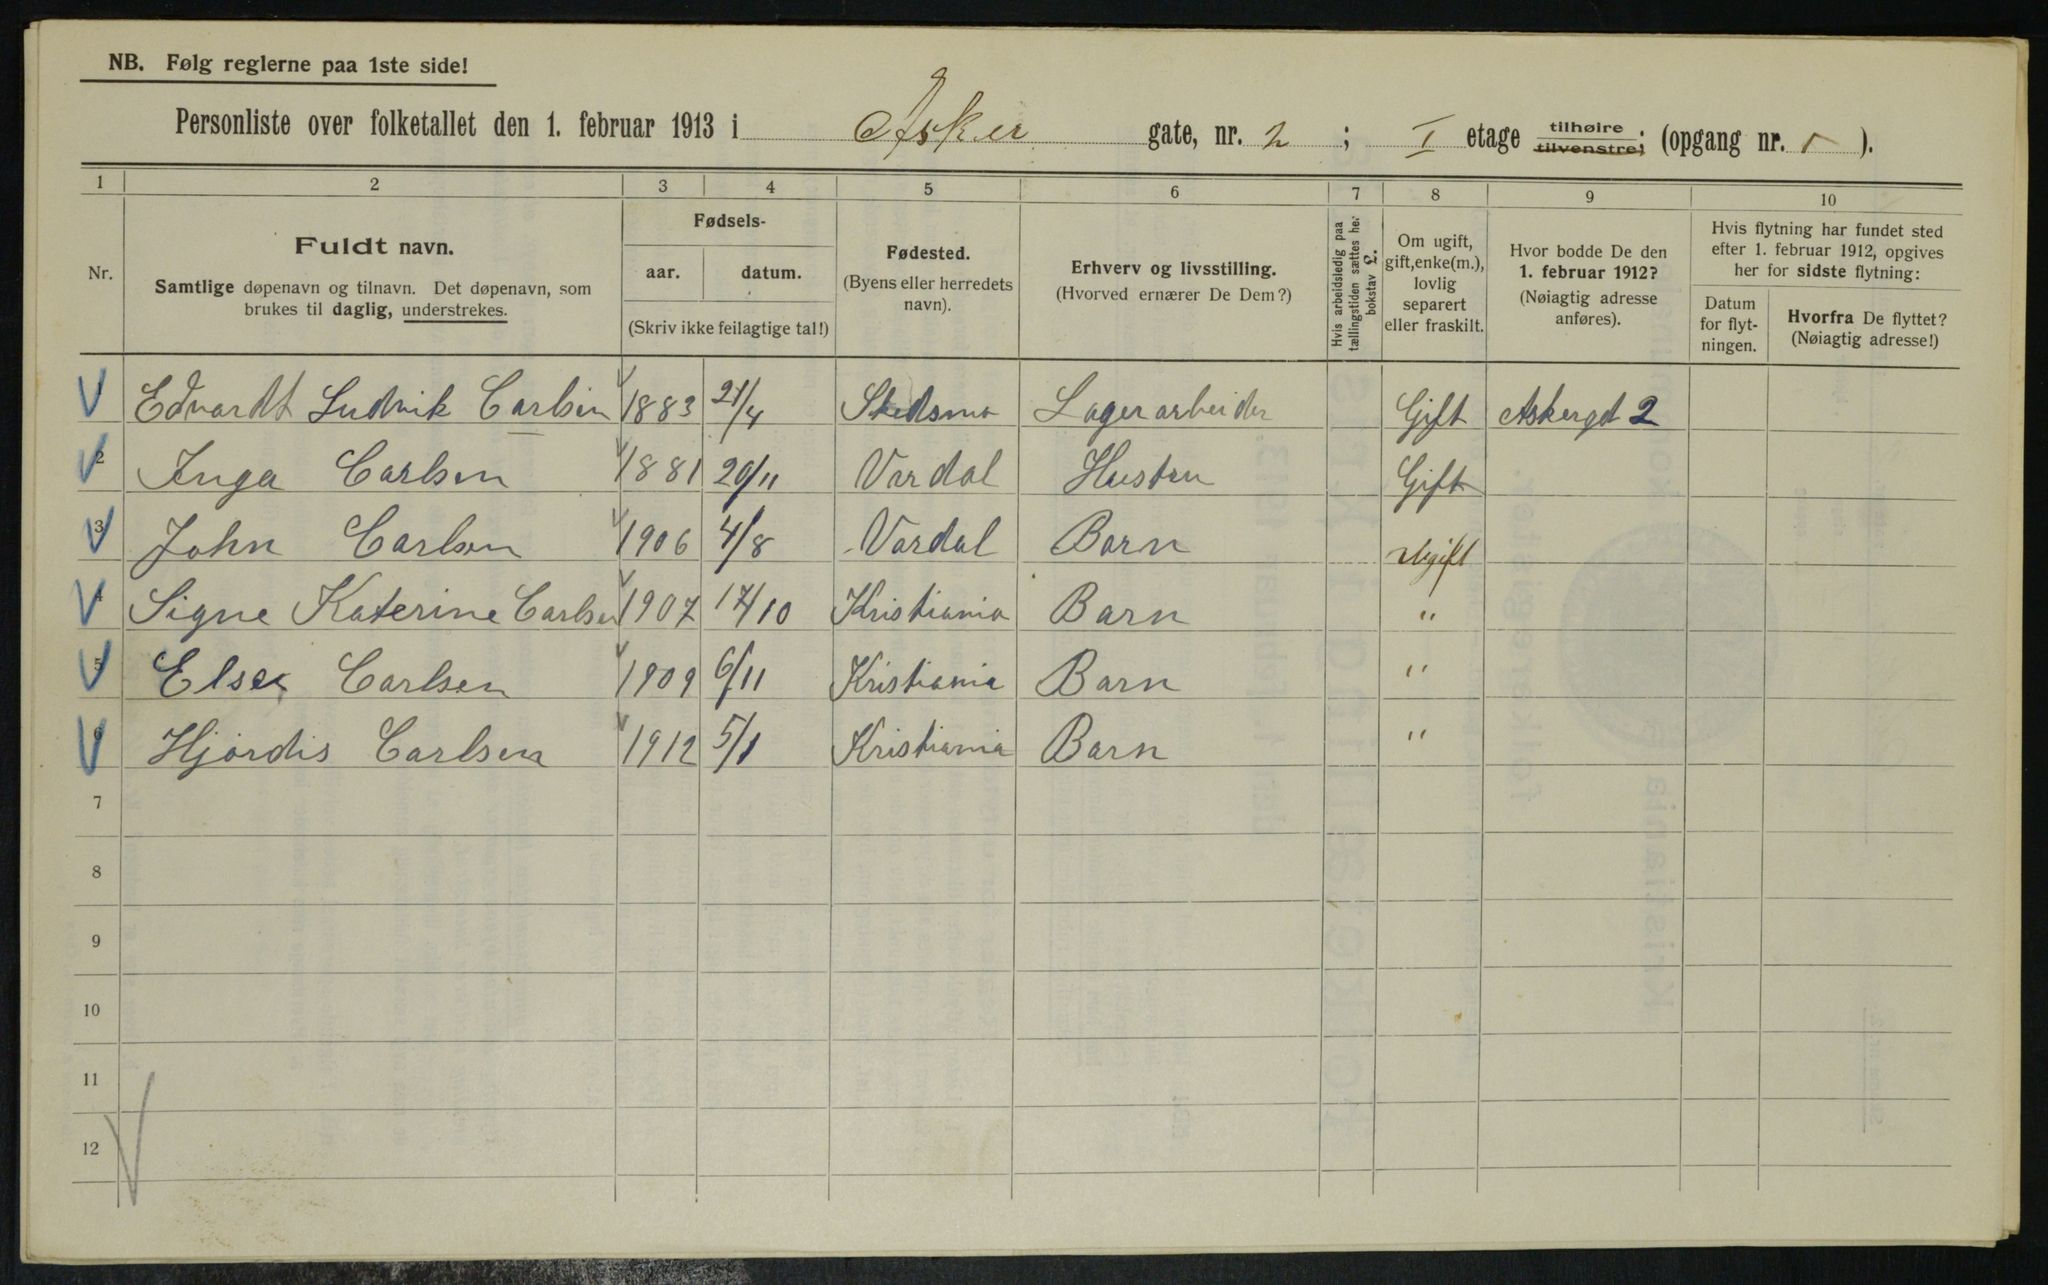 NB. Følg reglerne paa 1ste side!
Personliste over folketallet den 1. februar 1913 i Asker gate, nr. 2 ; I etage tilhøire tilvenstre; (opgang nr. ).
1 2 3 4 5 6 7 8 9 10
Nr.
Fuldt navn.
Samtlige døpenavn og tilnavn. Det døpenavn, som
brukes til daglig, understrekes.
Fødsels-
aar. datum.
(Skriv ikke feilagtige tal!)
Fødested.
(Byens eller herredets
navn).
Erhverv og livsstilling.
(Hvorved ernærer De Dem?)
Hvis arbeidsledig paa
tællingstiden sættes her
bokstav L.
Om ugift,
gift, enke(m.),
lovlig
separert
eller fraskilt.
Hvor bodde De den
1. februar 1912?
(Nøiagtig adresse
anføres).
Hvis flytning har fundet sted
efter 1. februar 1912, opgives
her for sidste flytning:
Datum
for flyt-
ningen.
Hvorfra De flyttet?
(Nøiagtig adresse!)
1 Edvardt Ludvik Carlsen 1883 21/4 Skedsmo Lagerarbeider Gift Askergt 2
2 Inga Carlsen 1881 20/11 Vardal Hustru Gift
3 John Carlsen 1906 4/8 Vardal Barn Ugift
4 Signe Katerine Carlsen 1907 17/10 Kristiania Barn "
5 Else Carlsen 1909 6/11 Kristiania Barn "
6 Hjördis Carlsen 1912 5/1 Kristiania Barn "
7
8
9
10
11
12